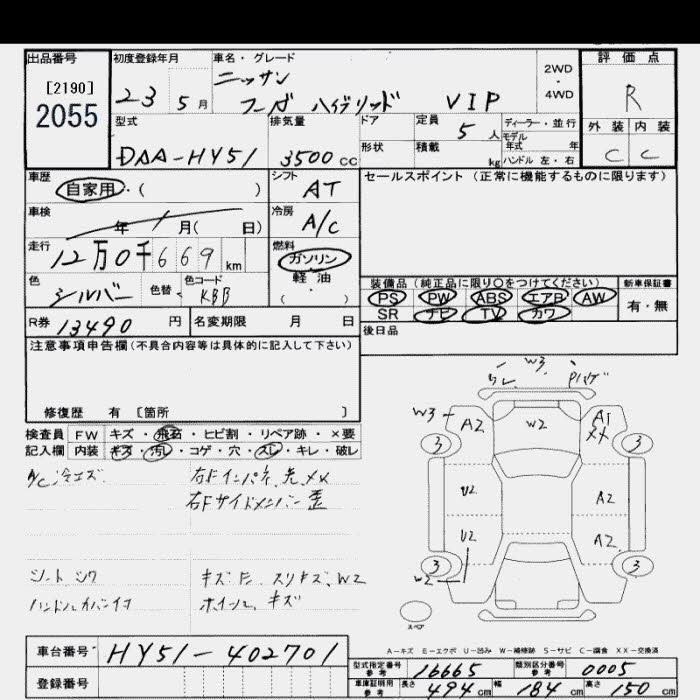 出品番号
[2190]
2055
初度登録年月
23 5月
車名・グレード
ニッサン
フーガ ハイブリッド VIP
2WD
・
4WD
評価点
R
外装 内装
C C
型式
DAA-HY51
排気量
3500cc
ドア
形状
定員
5人
積載
kg
ディーラー・並行
モデル
年式 年
ハンドル 左・右
車歴
自家用・( )
シフト
AT
車検
年 月( 日)
冷房
A/C
走行
12万0千669km
燃料
ガソリン
軽油
( ・ )
色
シルバー
色替
色コード
KBB
R券 13490円
名変期限 月 日
セールスポイント (正常に機能するものに限ります)
装備品 (純正品に限り〇をつけてください)
PS PW ABS エアB AW
SR ナビ TV カワ
新車保証書
有・無
後日品
注意事項申告欄(不具合内容等は具体的に記入して下さい)
修復歴 有 [箇所 ]
検査員 FW キズ・飛石・ヒビ割・リペア跡・×要
記入欄 内装 キズ・汚レ・コゲ・穴・スレ・キレ・破レ
A/C 冷エズ
右Fインパネ、先、メメ
右Fサイドメンバー歪
シート シワ
キズ、W2
ホイール キズ
W3
W3 A2 W2 A1
3 3
U2 A2
U2 A2
W2 3 3
スペア
A-キズ E-エクボ U-凹み W-補修跡 S-サビ C-腐食 XX-交換済
車台番号 HY51-402701
登録番号
型式指定番号
参考
16665
類別区分番号
参考
0005
車庫証明用
参考
長さ 494cm 幅 184cm 高さ 150cm